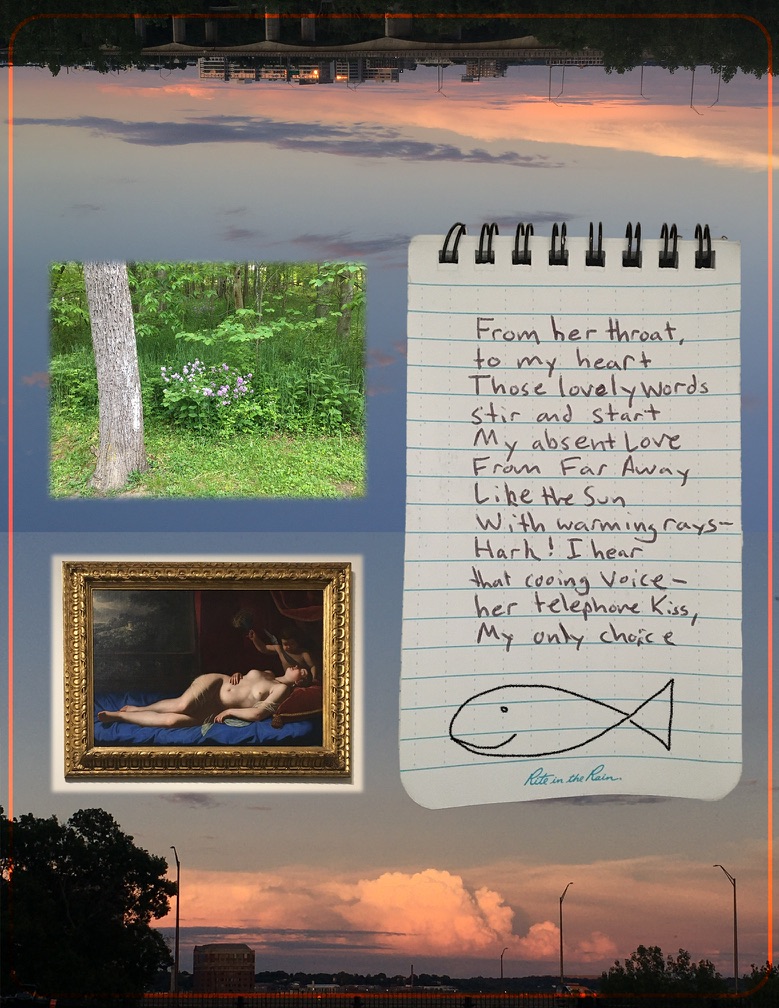 From her throat,
to my heart
Those lovely words
stir and start
My absent Love
From Far Away
Like the Sun
With warming rays-
Hark! I hear
that cooing Voice-
her telephone Kiss,
My only choice
Rite in the Rain